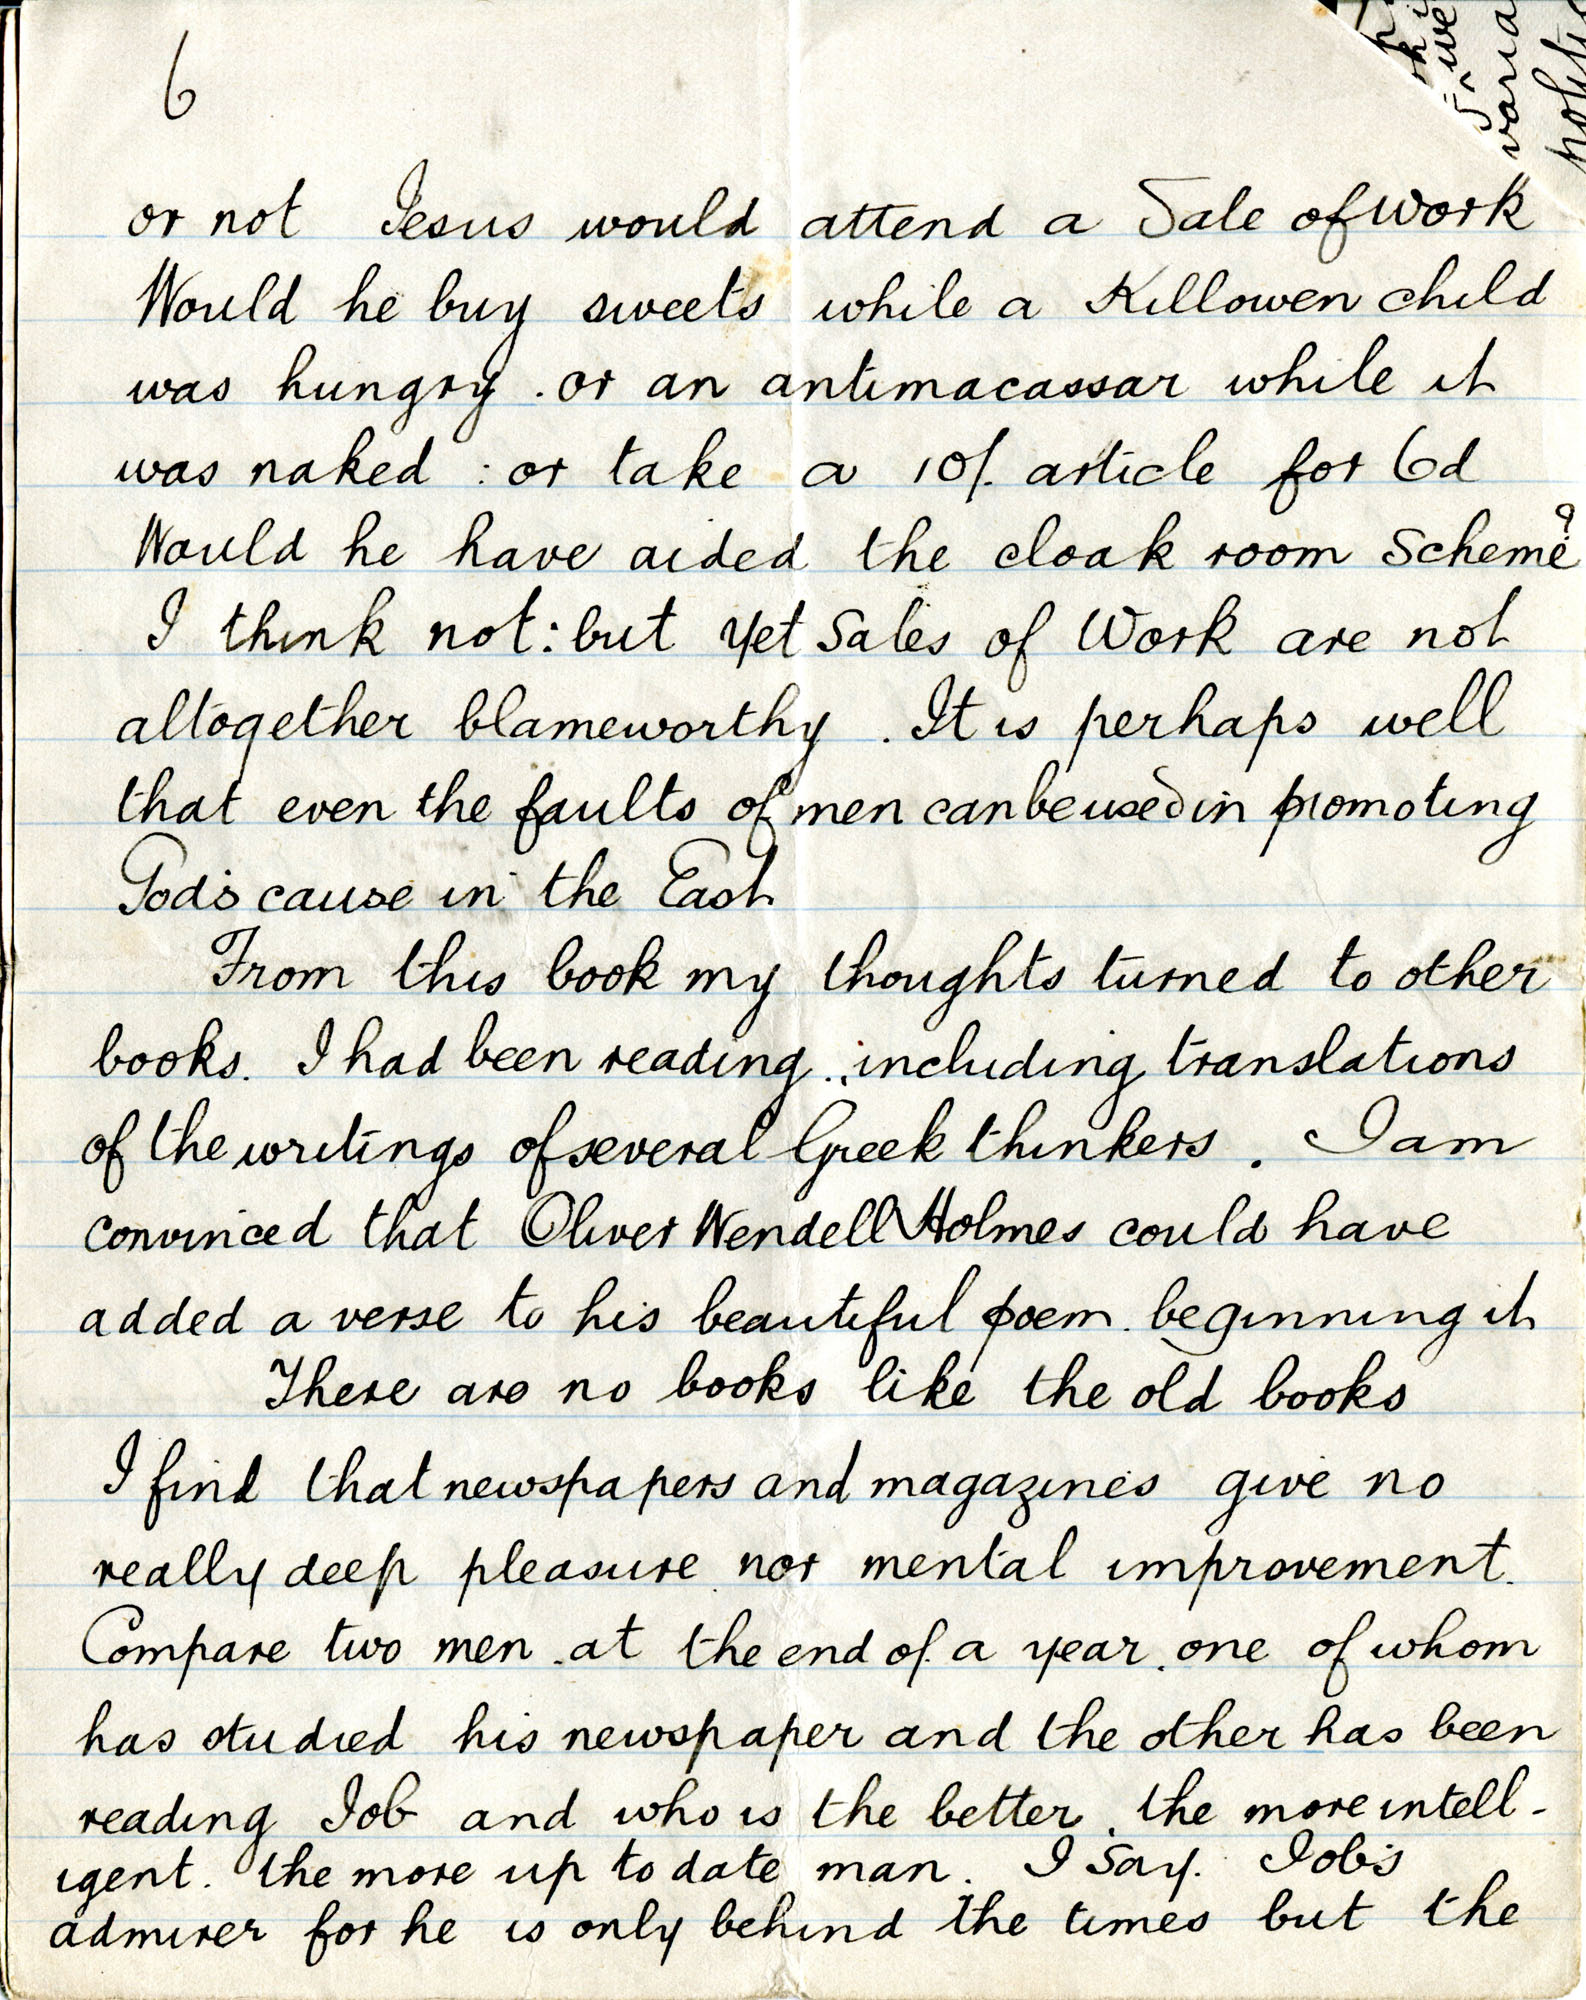 6
or not Jesus would attend a Sale of Work
Would he buy sweets while a Killowen child
was hungry . or an antimacassar while it
was naked : or take a 10/. article for 6d
Would he have aided the cloak room scheme?
I think not: but yet Sales of Work are not
altogether blameworthy . It is perhaps well
that even the faults of men can be used in promoting
God's cause in the East
From this book my thoughts turned to other
books. I had been reading, including translations
of the writings of several Greek thinkers . I am
convinced that Oliver Wendell Holmes could have
added a verse to his beautiful poem beginning it
There are no books like the old books
I find that newspapers and magazines give no
really deep pleasure nor mental improvement.
Compare two men . at the end of a year, one of whom
has studied his newspaper and the other has been
reading Job and who is the better, the more intell-
igent. the more up to date man. I say. Job's
admirer for he is only behind the times but the